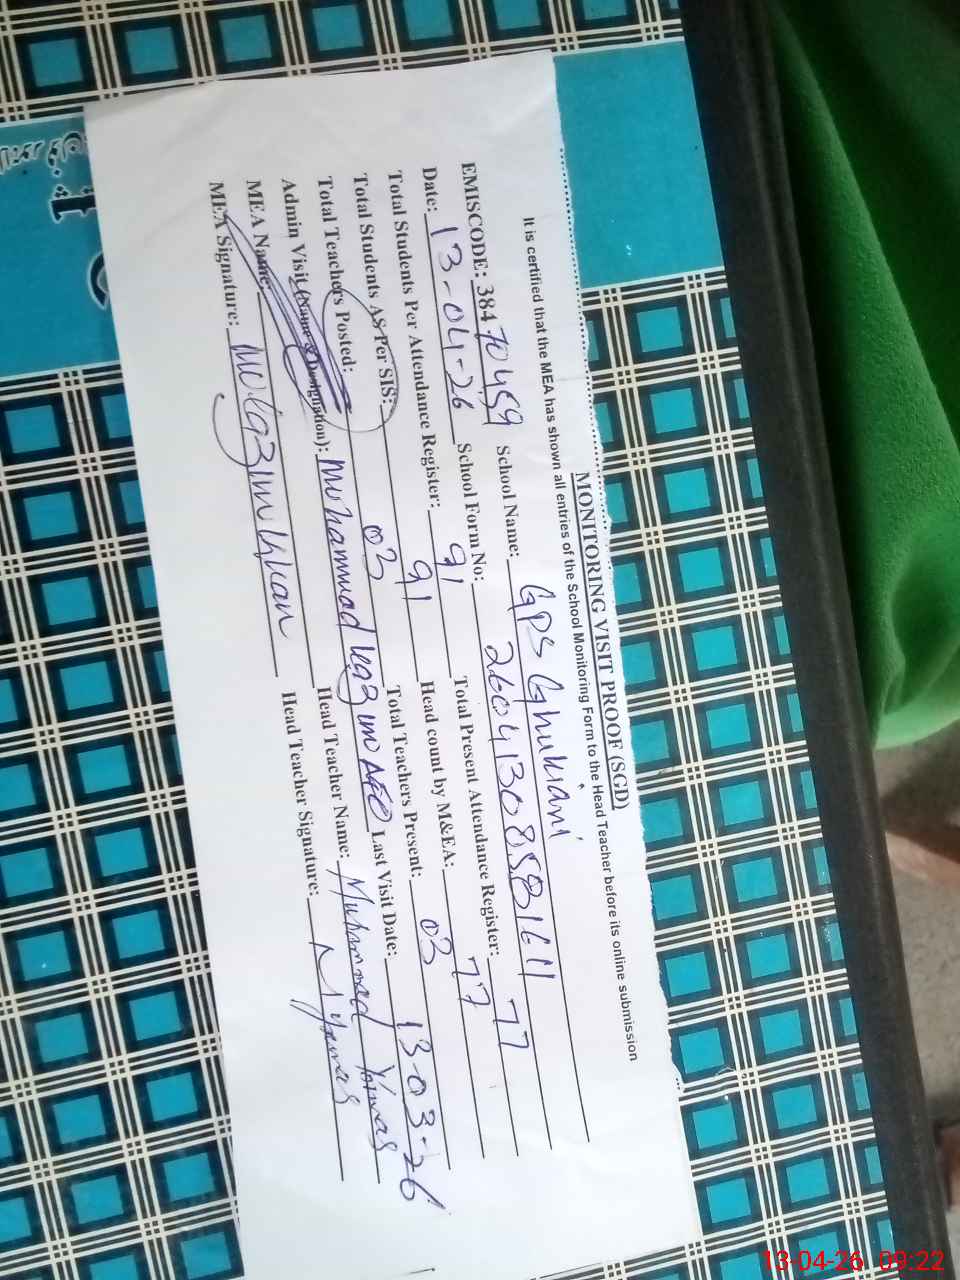 MONITORING VISIT PROOF (SGD)
It is certified that the MEA has shown all entries of the School Monitoring Form to the Head Teacher before its online submission
EMISCODE: 38470459 School Name: GPS Ghukiani
Date: 13-04-26 School Form No: 26041308581611
Total Students Per Attendance Register: 91 Total Present Attendance Register: 77
Total Students AS Per SIS: 91 Head count by M&EA: 77
Total Teachers Posted: 03 Total Teachers Present: 03
Admin Visit (Name & Designation): Muhammad AEO Last Visit Date: 13-03-26
MEA Name: Head Teacher Name: Muhammad
MEA Signature: Khan Head Teacher Signature:
13-04-26 09:22